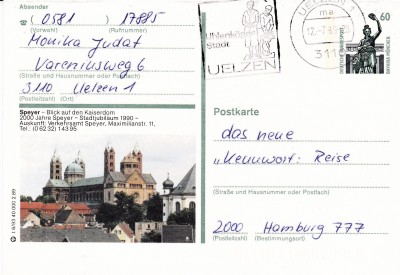 Absender
0581 / 17885
(Vorwahl) (Rufnummer)
Monika Judat
Vareniusweg 6
(Straße und Hausnummer oder Postfach)
3110 Uelzen 1
(Postleitzahl) (Ort)
Speyer – Blick auf den Kaiserdom
2000 Jahre Speyer – Stadtjubiläum 1990 –
Auskunft: Verkehrsamt Speyer, Maximilianstr. 11,
Tel.: (0 62 32) 1 43 95
Stadt
UELZEN
UELZEN 1
ma
60
Postkarte
das neue
"Kennwort: Reise
(Straße und Hausnummer oder Postfach)
2000 Hamburg 777
(Postleitzahl) (Bestimmungsort)